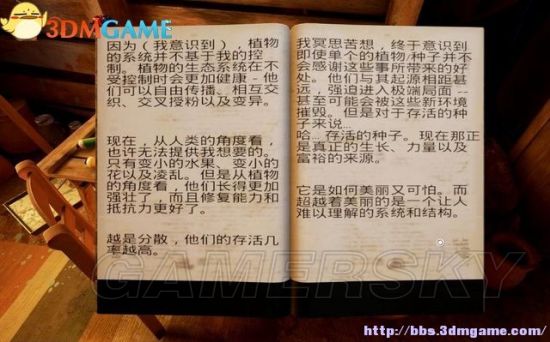 3DMGAME
因为(我意识到),植物
的系统并不基于我的控
制。植物的生态系统在不
受控制时会更加健康-他
们可以自由传播、相互交
织、交叉授粉以及变异。
现在,从人类的角度看,
也许无法提供我想要的。
只有变小的水果、变小的
花以及凌乱。但是从植物
的角度看,他们长得更加
强壮了,而且修复能力和
抵抗力更好了。
越是分散,他们的存活几
率越高。
我冥思苦想,终于意识到
即使单个的植物/种子并不
会感谢这些事所带来的好
处。他们与其起源相距甚
远,强迫进入极端局面--
甚至可能会被这些新环境
摧毁。但是对于存活的种
子来说...
哈...存活的种子。现在那正
是真正的生长、力量以及
富裕的来源。
它是如何美丽又可怕。而
超越着美丽的是一个让人
难以理解的系统和结构。
GAMERSKY
http://bbs.3dmgame.com/